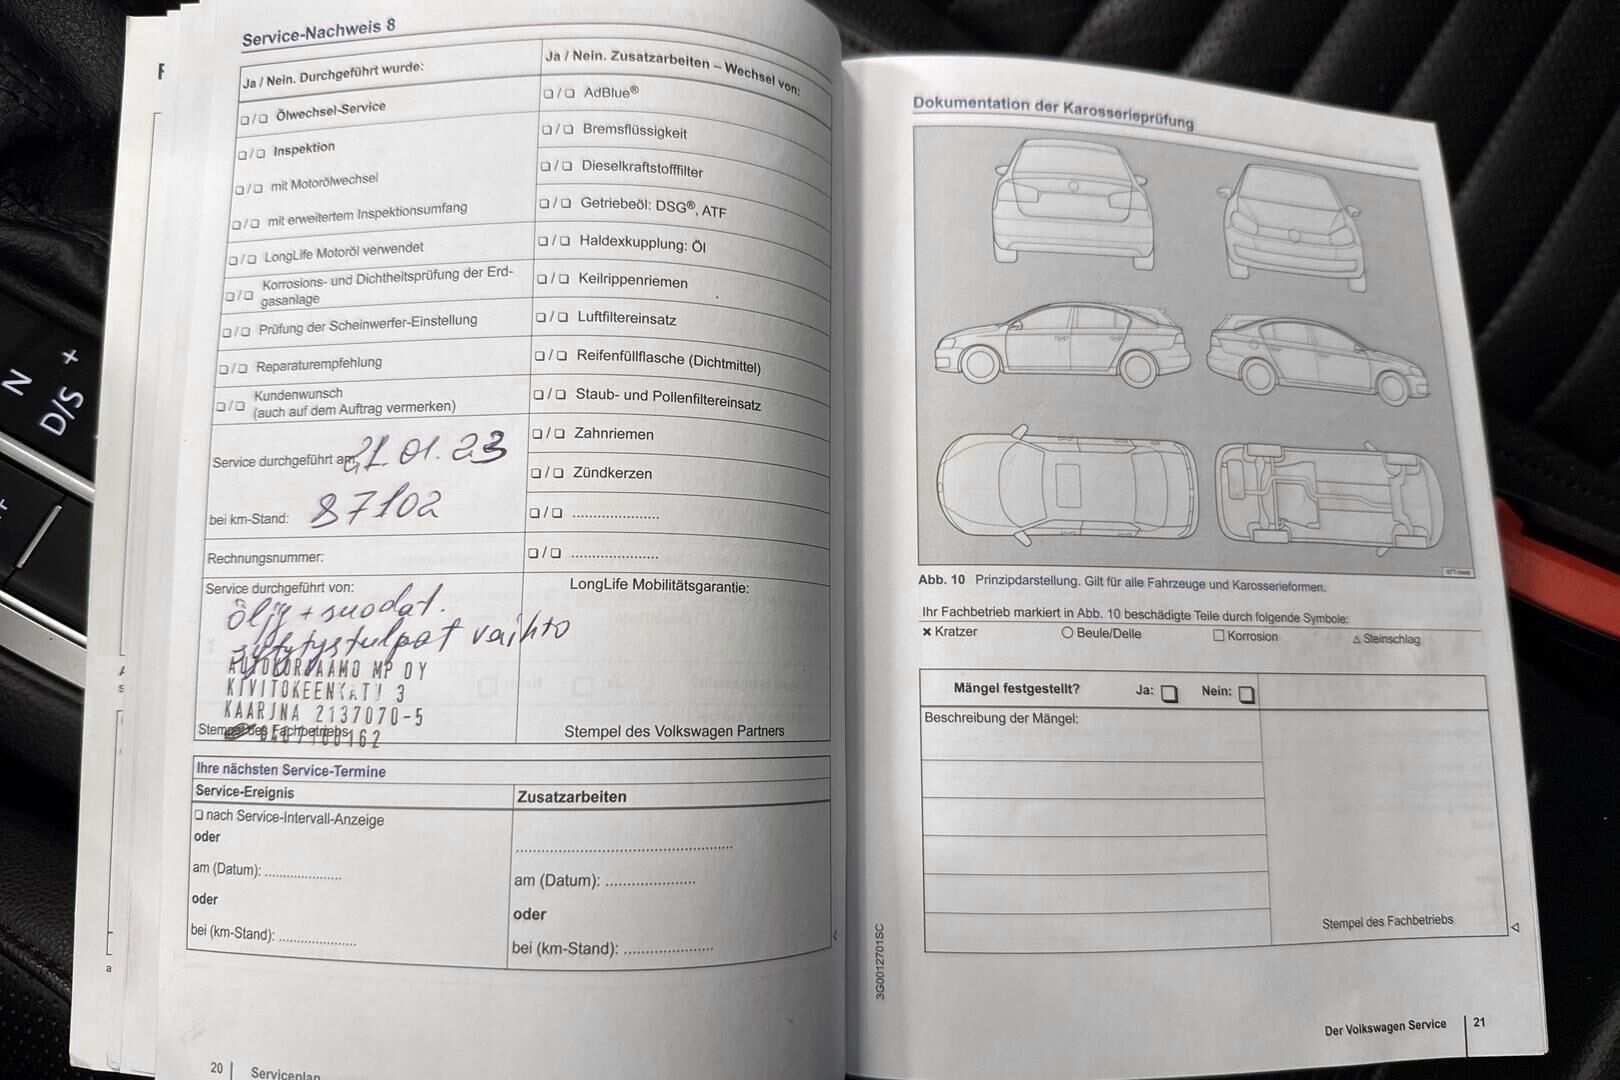 Service-Nachweis 8
Ja / Nein. Durchgeführt wurde:
❏ / ❏ Ölwechsel-Service
❏ / ❏ Inspektion
❏ / ❏ mit Motorölwechsel
❏ / ❏ mit erweitertem Inspektionsumfang
❏ / ❏ LongLife Motoröl verwendet
❏ / ❏ Korrosions- und Dichtheitsprüfung der Erd-
gasanlage
❏ / ❏ Prüfung der Scheinwerfer-Einstellung
❏ / ❏ Reparaturempfehlung
❏ / ❏ Kundenwunsch
(auch auf dem Auftrag vermerken)
Service durchgeführt am: 21.01.23
bei km-Stand: 87102
Rechnungsnummer:
Service durchgeführt von:
öljy + suodat.
sytytystulpat vaihto
AUTOKORJAAMO MP OY
KIVITOKEENKATU 3
KAARINA 2137070-5
Stempel des Fachbetriebs
Ja / Nein. Zusatzarbeiten – Wechsel von:
❏ / ❏ AdBlue®
❏ / ❏ Bremsflüssigkeit
❏ / ❏ Dieselkraftstofffilter
❏ / ❏ Getriebeöl: DSG®, ATF
❏ / ❏ Haldexkupplung: Öl
❏ / ❏ Keilrippenriemen
❏ / ❏ Luftfiltereinsatz
❏ / ❏ Reifenfüllflasche (Dichtmittel)
❏ / ❏ Staub- und Pollenfiltereinsatz
❏ / ❏ Zahnriemen
❏ / ❏ Zündkerzen
❏ / ❏ ....................
❏ / ❏ ....................
LongLife Mobilitätsgarantie:
Stempel des Volkswagen Partners
Ihre nächsten Service-Termine
Service-Ereignis
❏ nach Service-Intervall-Anzeige
oder
am (Datum): ..................
oder
bei (km-Stand): ..................
Zusatzarbeiten
..................................................
am (Datum): .....................
oder
bei (km-Stand): .....................
20 | Serviceplan
Dokumentation der Karosserieprüfung
Abb. 10 Prinzipdarstellung. Gilt für alle Fahrzeuge und Karosserieformen.
Ihr Fachbetrieb markiert in Abb. 10 beschädigte Teile durch folgende Symbole:
× Kratzer ○ Beule/Delle □ Korrosion △ Steinschlag
Mängel festgestellt? Ja: ❏ Nein: ❏
Beschreibung der Mängel:
Stempel des Fachbetriebs
3G0012701SC
Der Volkswagen Service | 21
N
D/S
+